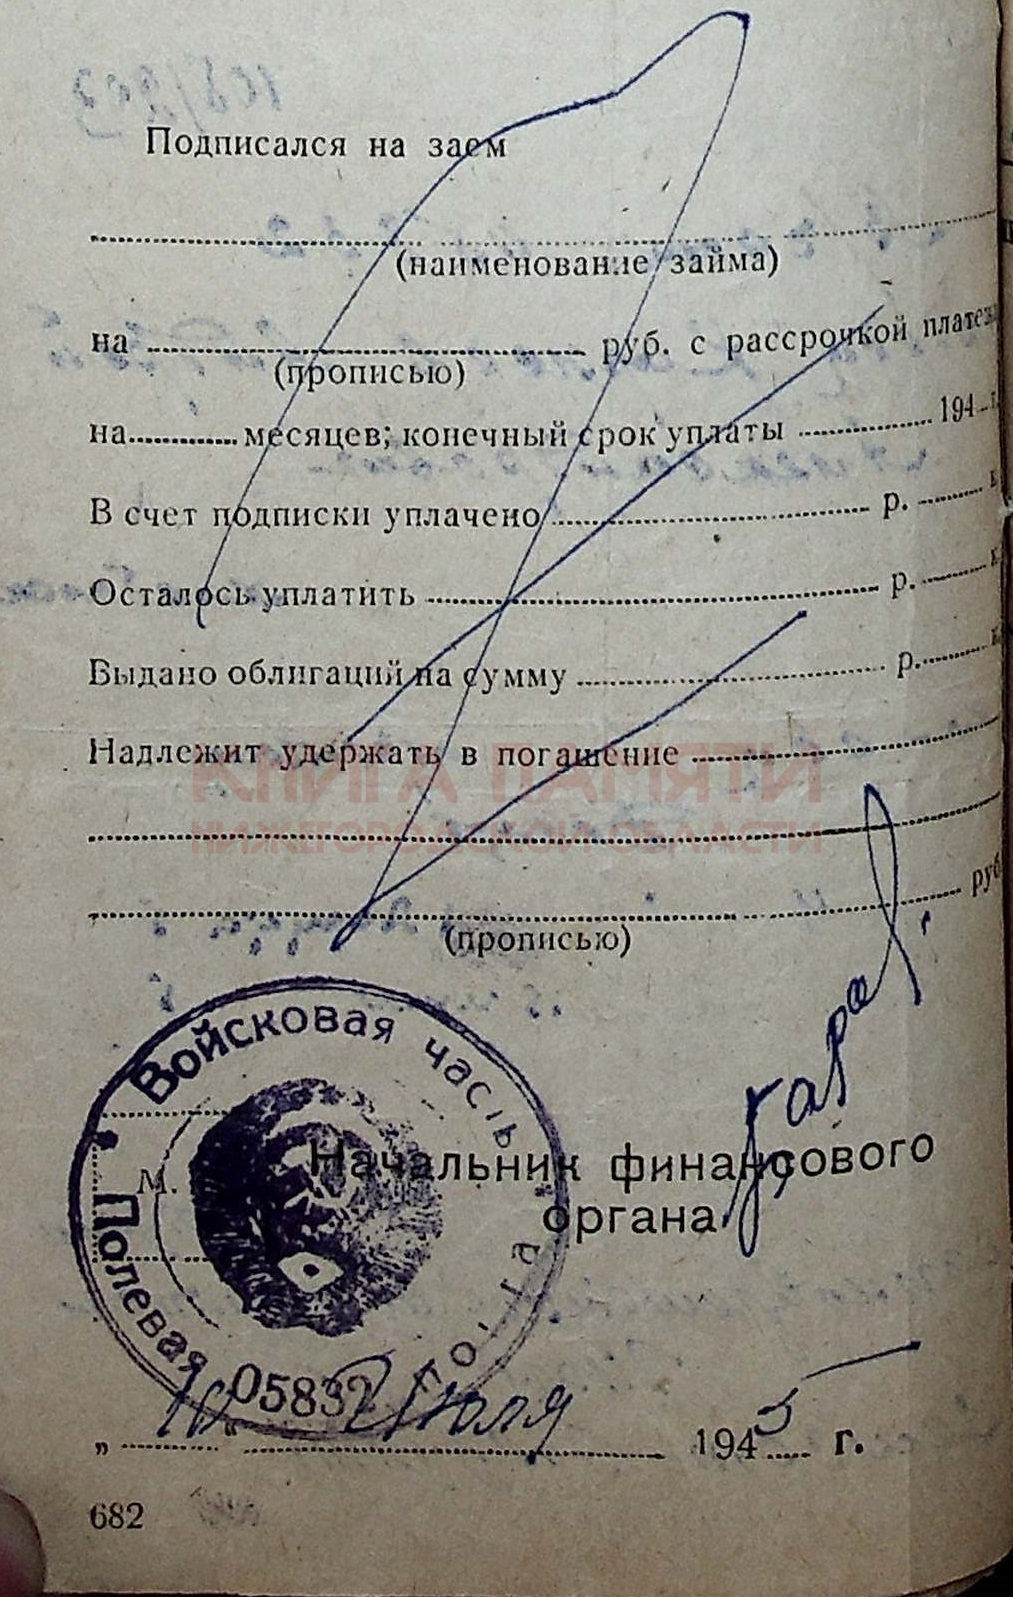 Подписался на заем
(наименование займа)
на ............ руб. с рассрочкой платежа
(прописью)
на............ месяцев; конечный срок уплаты ............ 194
В счет подписки уплачено ............ р. ............
Осталось уплатить ............ р. ............
Выдано облигаций на сумму ............ р. ............
Надлежит удержать в погашение ............
КНИГА ПАМЯТИ
НИЖЕГОРОДСКОЙ ОБЛАСТИ
............ руб
(прописью)
Войсковая часть
Полевая почта
05832
М.
Начальник финансового
органа
„ 10 “ Июля 1945 г.
682